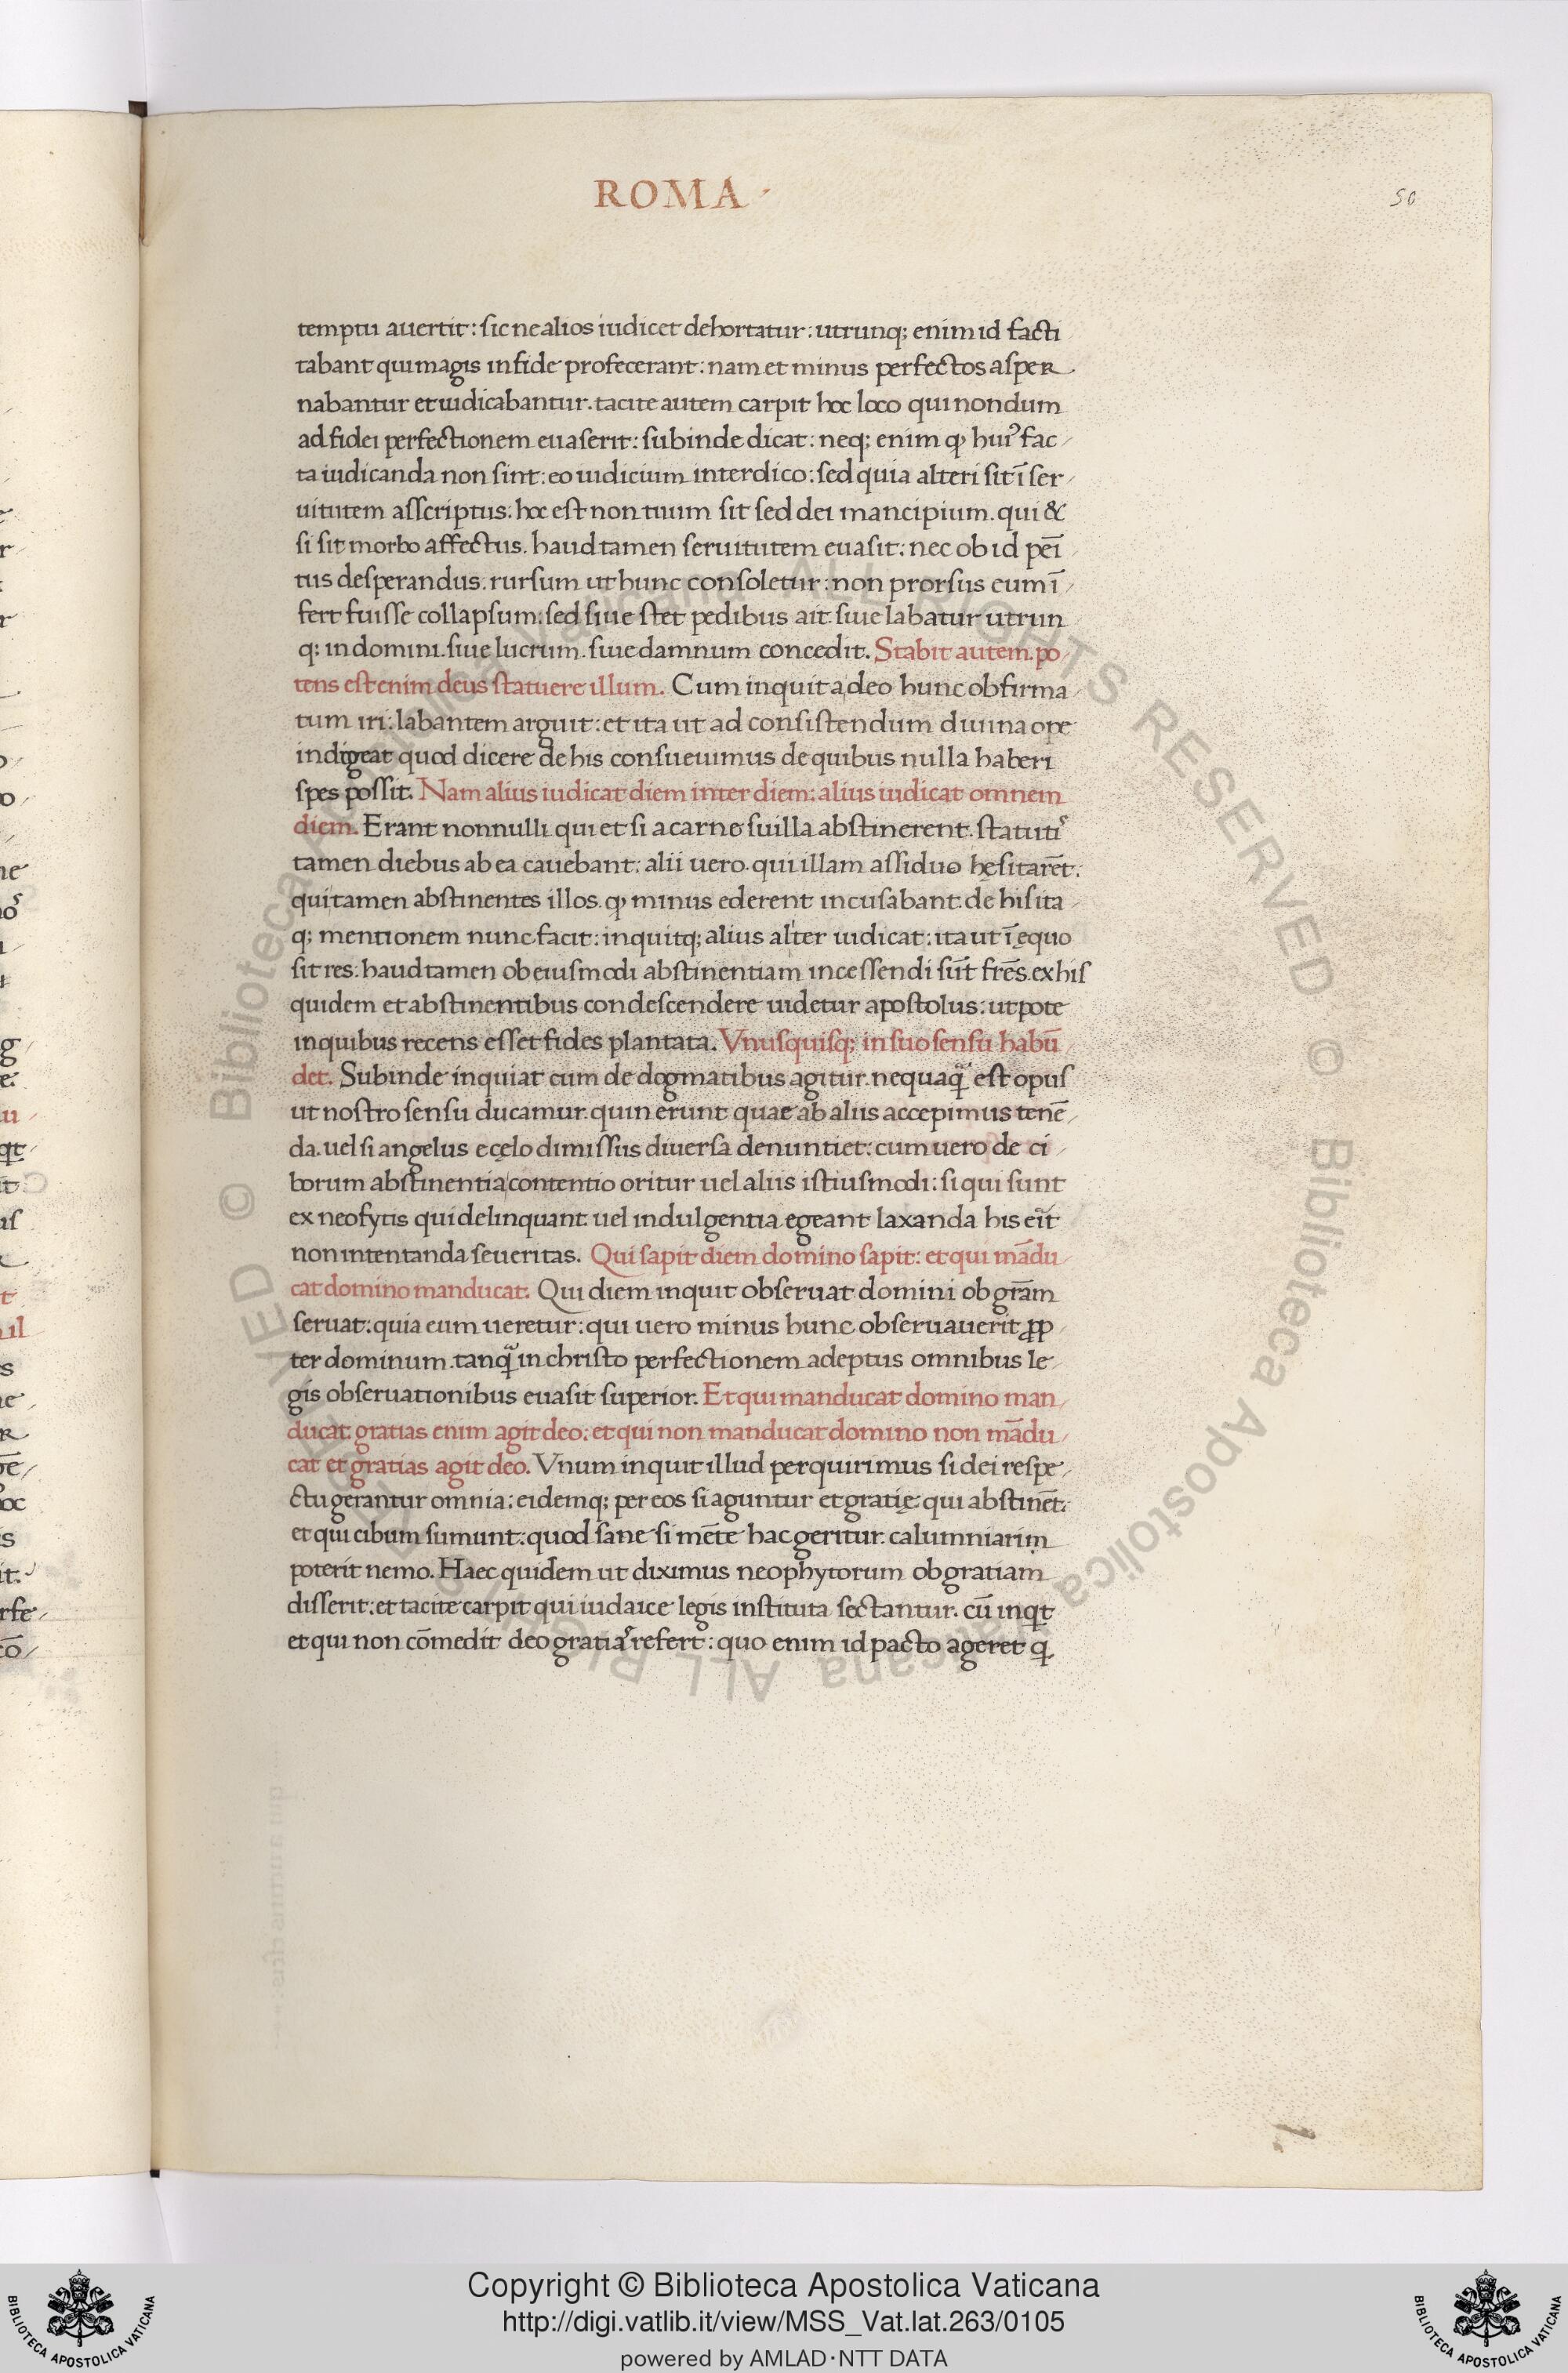 ROMA
50
temptu auertit: sic ne alios iudicet dehortatur: utrunq; enim id facti
tabant qui magis in fide profecerant: nam et minus perfectos asper
nabantur et iudicabantur. tacite autem carpit hoc loco qui nondum
ad fidei perfectionem euaserit: subinde dicat: neq; enim ꝙ huiꝰ fac
ta iudicanda non sint: eo iudicium interdico: sed quia alteri sit ī ser
uitutem asscriptus: hoc est non tuum sit sed dei mancipium. qui &
si sit morbo affectus. haud tamen seruitutem euasit: nec ob id peī
tus desperandus. rursum ut hunc consoletur: non prorsus eum ī
fert fuisse collapsum: sed siue stet pedibus ait siue labatur utrun
q; in domini. siue lucrum. siue damnum concedit. Stabit autem. po
tens est enim deus statuere illum. Cum inquit adeo hunc obfirma
tum iri: labantem arguit: et ita ut ad consistendum diuina ope
indigeat quod dicere de his consueuimus de quibus nulla haberi
spes possit. Nam alius iudicat diem inter diem: alius iudicat omnem
diem. Erant nonnulli qui et si a carne suilla abstinerent. statutiˢ
tamen diebus ab ea cauebant: alii uero. qui illam assiduo hęsitarēt.
qui tamen abstinentes illos. ꝙ minus ederent incusabant. de his ita
q; mentionem nunc facit: inquitq; alius alter iudicat: ita ut ī ęquo
sit res: haud tamen ob eiusmodi abstinentiam incessendi sūt frēs. ex his
quidem et abstinentibus condescendere uidetur apostolus: ut pote
in quibus recens esset fides plantata. Vnusquisq; in suo sensu habū
det. Subinde inquiat cum de dogmatibus agitur. nequaq̃ est opus
ut nostro sensu ducamur. quin erunt quae ab aliis accepimus tenē
da. uel si angelus e cęlo dimissus diuersa denuntiet: cum uero de ci
borum abstinentia contentio oritur uel aliis istiusmodi: si qui sunt
ex neofytis qui delinquant uel indulgentia egeant laxanda his erit
non intentanda seueritas. Qui sapit diem domino sapit: et qui mādu
cat domino manducat. Qui diem inquit obseruat domini ob grām
seruat: quia eum ueretur: qui uero minus hunc obseruauerit ꝓp
ter dominum. tanq̃ in christo perfectionem adeptus omnibus le
gis obseruationibus euasit superior. Et qui manducat domino man
ducat: gratias enim agit deo: et qui non manducat domino non mādu
cat et gratias agit deo. Vnum inquit illud perquirimus si dei respe
ctu gerantur omnia: eidemq; per eos si aguntur et gratię: qui abstinēt:
et qui cibum sumunt: quod sane si mēte hac geritur. calumniarim
poterit nemo. Haec quidem ut diximus neophytorum ob gratiam
disserit: et tacite carpit qui iudaice legis instituta sectantur. cū inqt
et qui non cōmedit deo gratiaˢ refert: quo enim id pacto ageret q
Copyright © Biblioteca Apostolica Vaticana
http://digi.vatlib.it/view/MSS_Vat.lat.263/0105
powered by AMLAD·NTT DATA